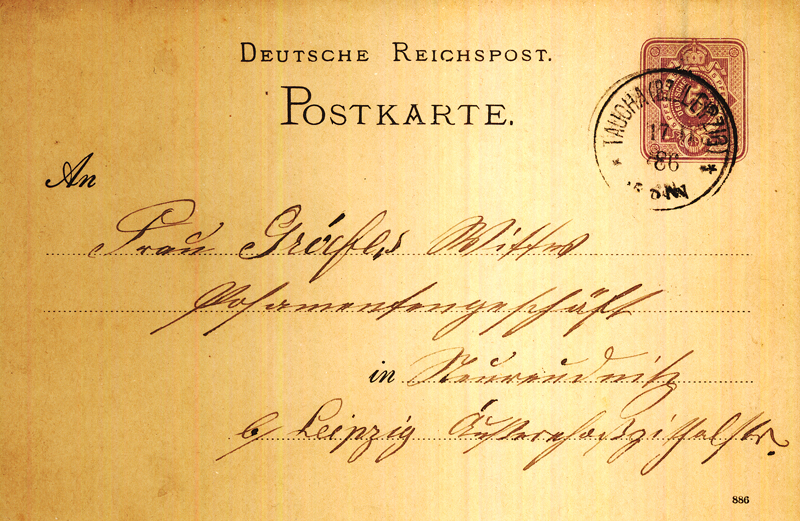 DEUTSCHE REICHSPOST.
POSTKARTE.
TAUCHA (BZ. LEIPZIG)
17
86
An
Frau Gräfes Wittwe
Posamentengeschäft
in Neureudnitz
b/ Leipzig
886